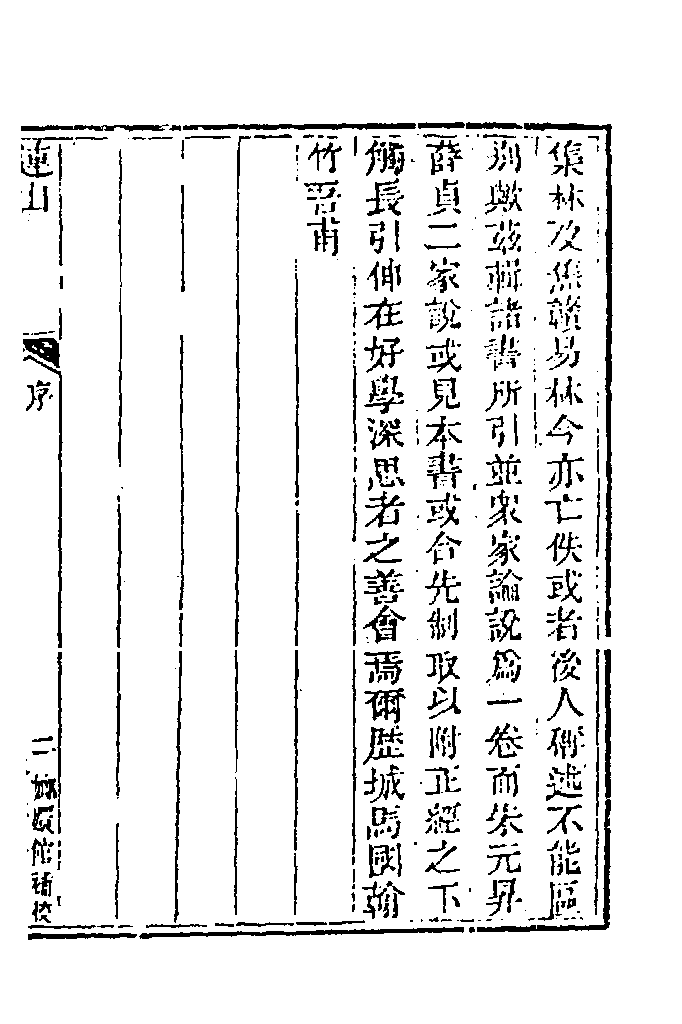 集林及焦贛易林今亦亡佚或者後人稱述不能區
別歟茲輯諸書所引並衆家論說爲一卷而朱元昇
薛貞二家說或見本書或合先制取以附正經之下
觸長引伸在好學深思者之善會焉爾歷城馬國翰
竹吾甫
連山
序
二
嫏嬛館補校